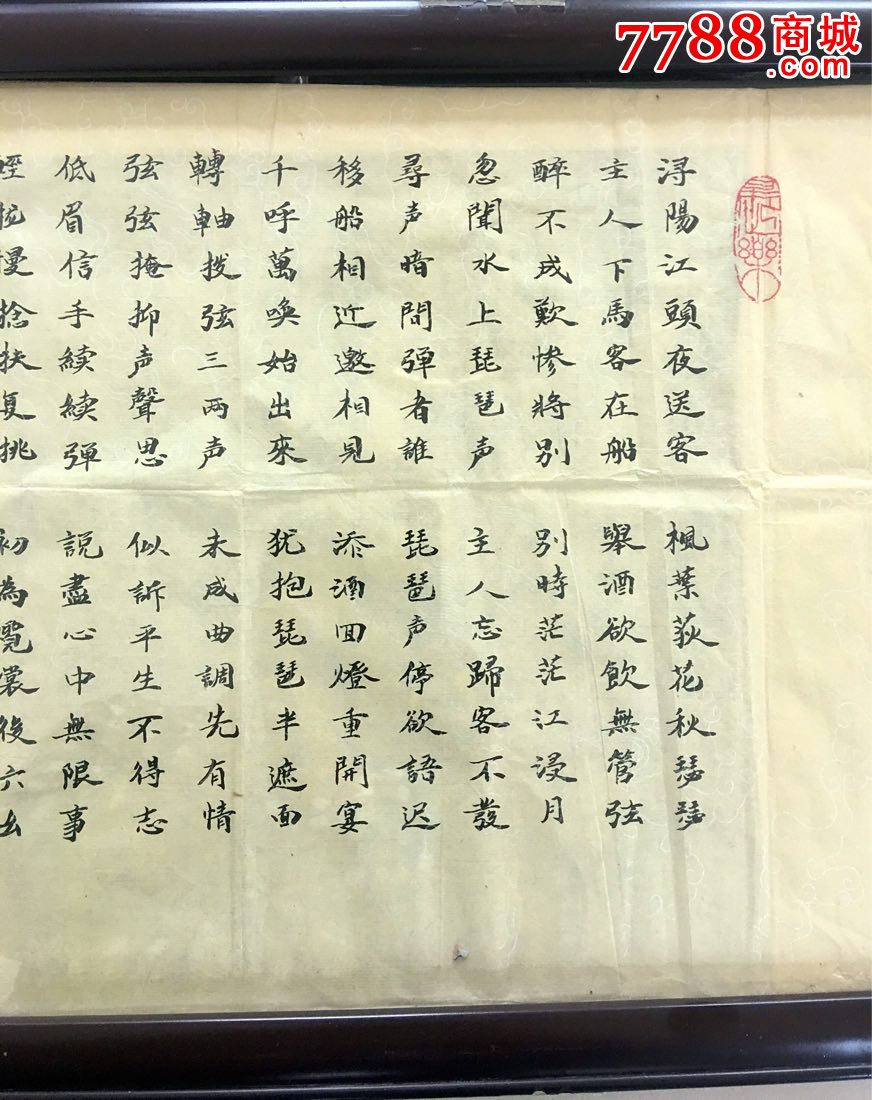 7788商城
.com
浔陽江頭夜送客 楓葉荻花秋瑟瑟
主人下馬客在船 舉酒欲飲無管弦
醉不成歎惨將别 别時茫茫江浸月
忽聞水上琵琶声 主人忘歸客不發
尋声暗問弹者誰 琵琶声停欲語迟
移船相近邀相見 添酒回燈重開宴
千呼萬唤始出來 犹抱琵琶半遮面
轉軸拨弦三两声 未成曲調先有情
弦弦掩抑声聲思 似訴平生不得志
低眉信手續續弹 説盡心中無限事
慢捻复挑 初為霓裳後六幺